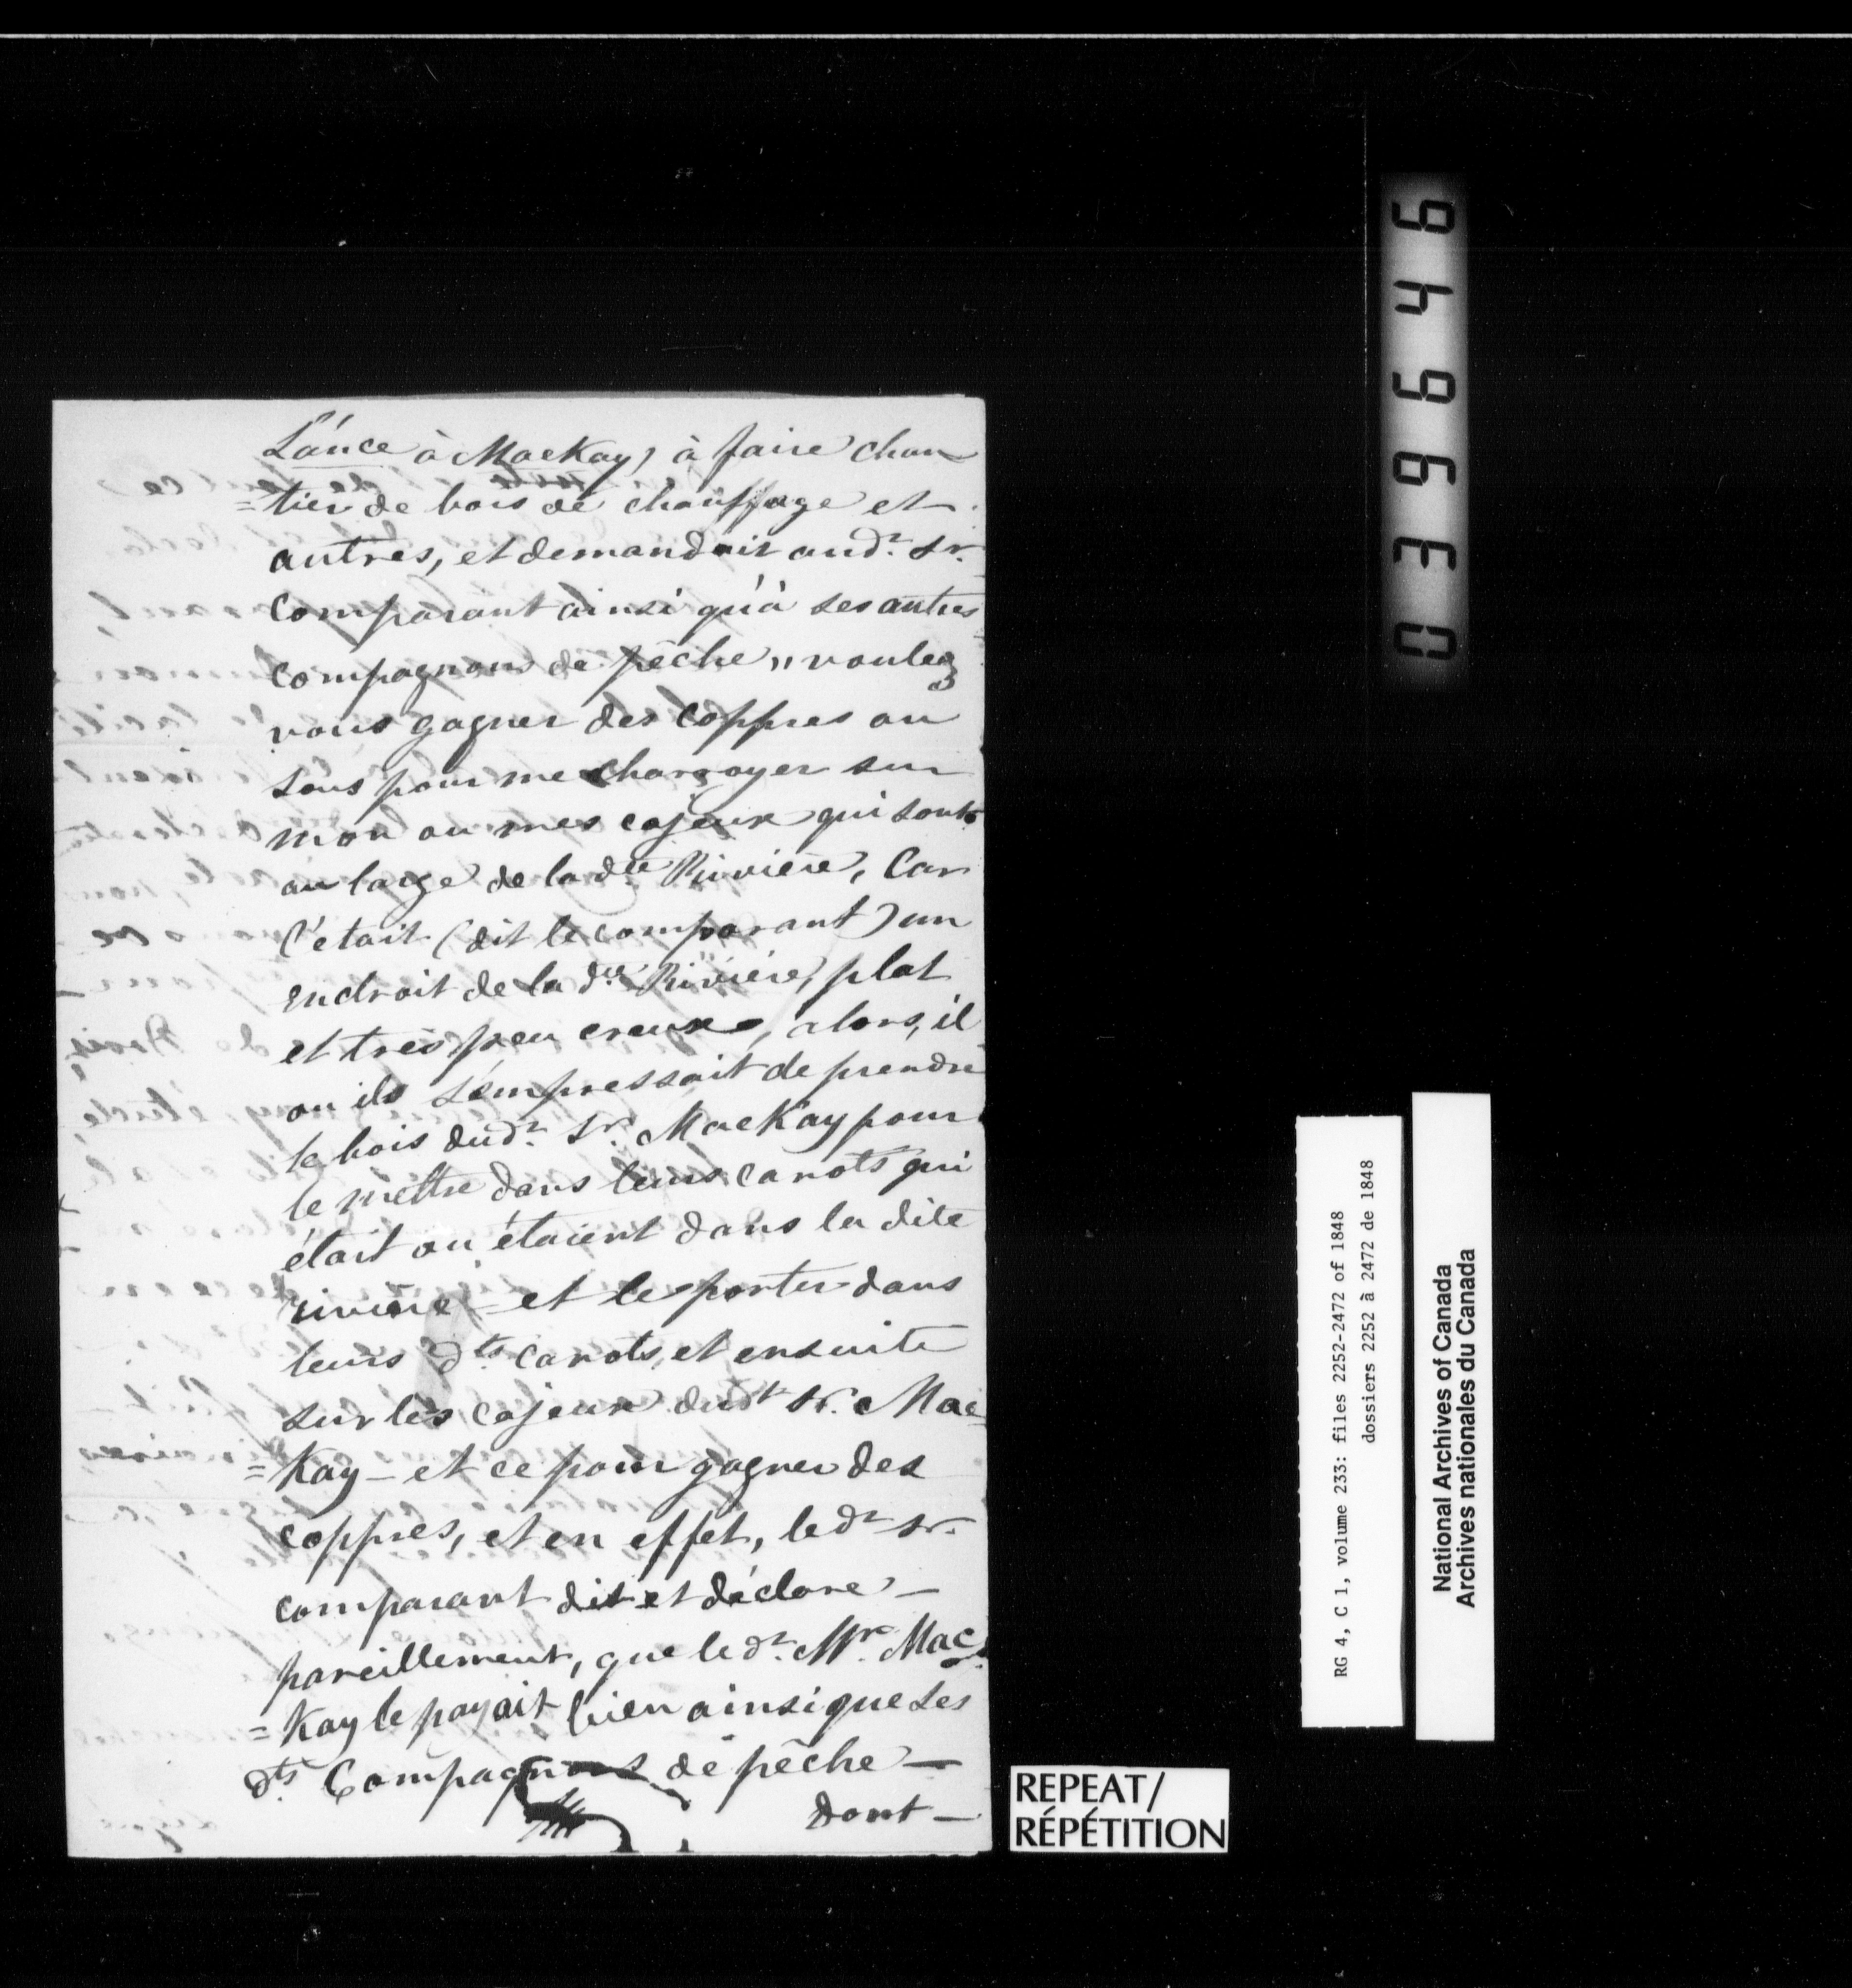 L'ance à MacKay) à faire chan
=tier de bois de chauffage et
autres, et demandait aud.t Sr.
Comparant ainsi qu'à ses autres
Compagnons de pêche „ voulez
vous gagner des Coppres ou
sous pour me charroyer sur
mon ou mes cajeux qui sont
au large de la dte Rivière, Car
C'était (dit le comparant) un
endroit de la dte Rivière, plat
et très peu creuxe, alors, il
ou ils s'empressait de prendre
le bois dud.t Sr. MacKay pour
le mettre dans leurs canots qui
était ou étaient dans la dite
rivière – et le porter dans
leurs dts canots, et ensuite
sur les cajeux dudt Sr. Mac=
=Kay – et ce pour gagner des
coppres, et en effet, le dt Sr.
comparant dit et déclare –
pareillement, que le d.t Mr. Mac
=Kay le payait bien ainsi que ses
dts Compagnons de pêche –
dont –
039646
RG 4, C 1, volume 233: files 2252-2472 of 1848
dossiers 2252 à 2472 de 1848
National Archives of Canada
Archives nationales du Canada
REPEAT/
RÉPÉTITION